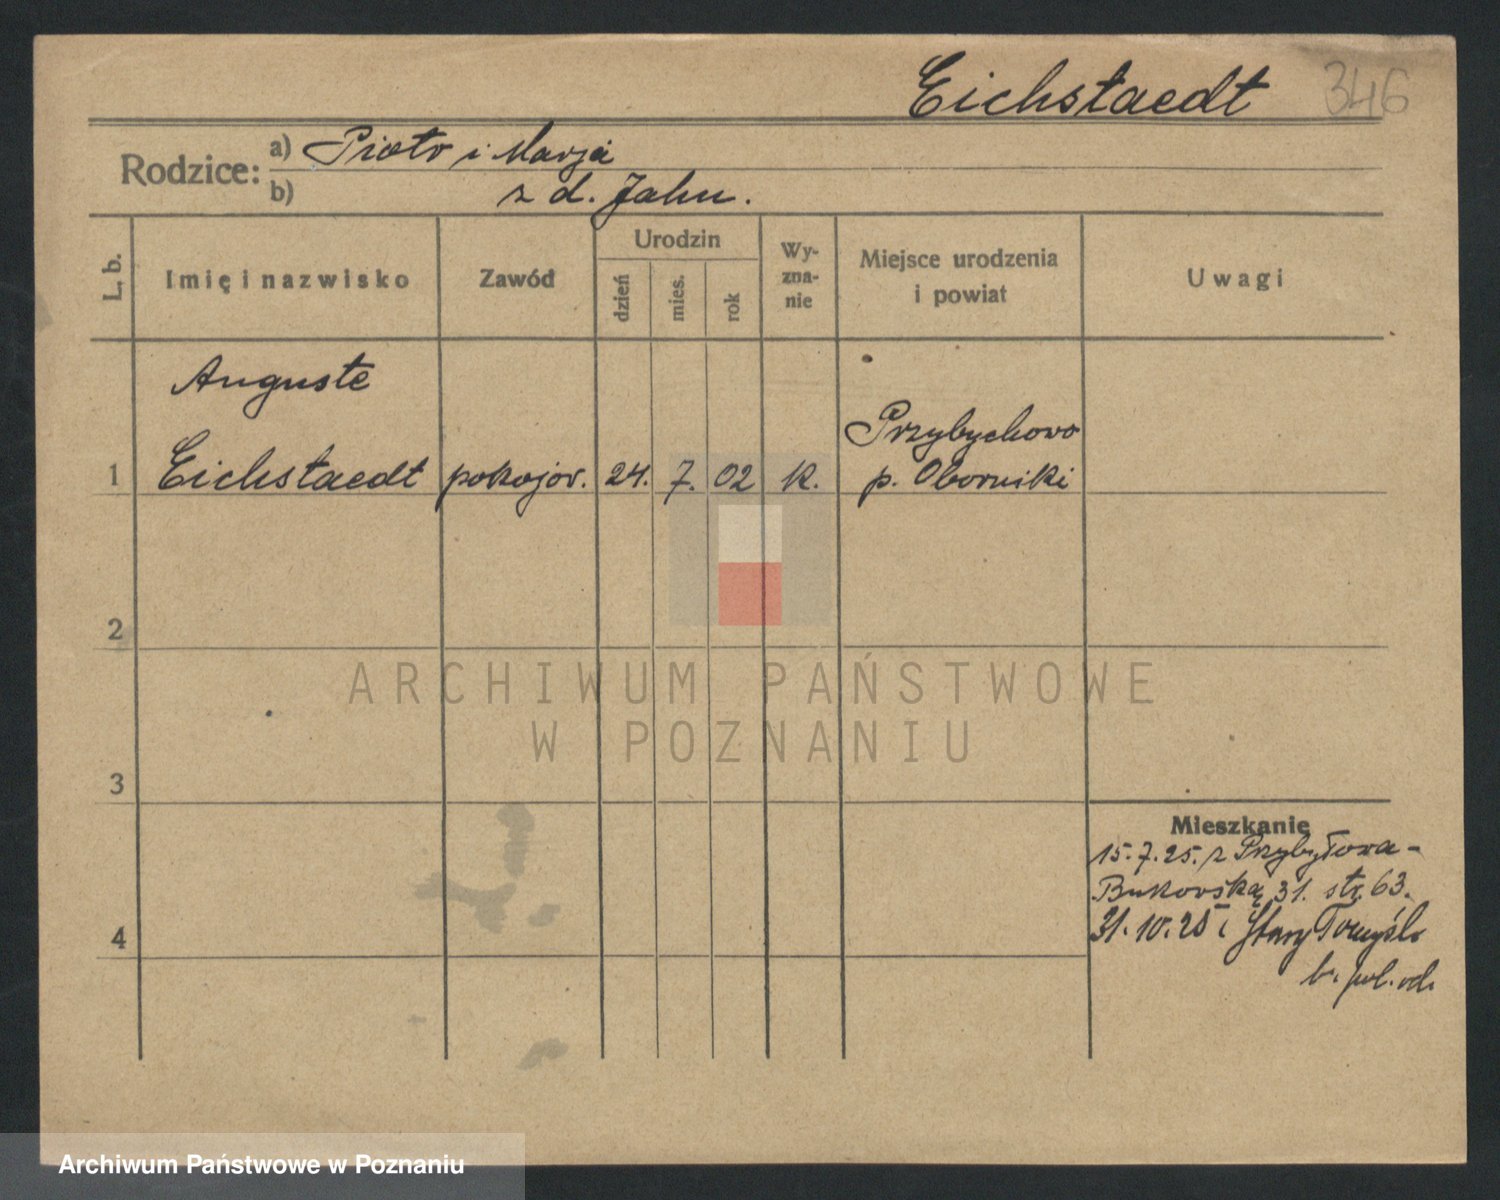 Eichstaedt 346
Rodzice:
a) Piotr i Marja
b) z d. Jahn.
L. b.
Imię i nazwisko
Zawód
Urodzin
dzień
mies.
rok
Wy-
zna-
nie
Miejsce urodzenia
i powiat
Uwagi
Auguste
Przybychowo
1 Eichstaedt pokojow. 24. 7. 02 k. p. Oborniki
2
ARCHIWUM PAŃSTWOWE
W POZNANIU
3
Mieszkanie
15.7.25. z Przybyłowa-
Bukowską 31. str. 63.
4 31.10.25 i Stary Tomyśl
b. pol. od.
Archiwum Państwowe w Poznaniu